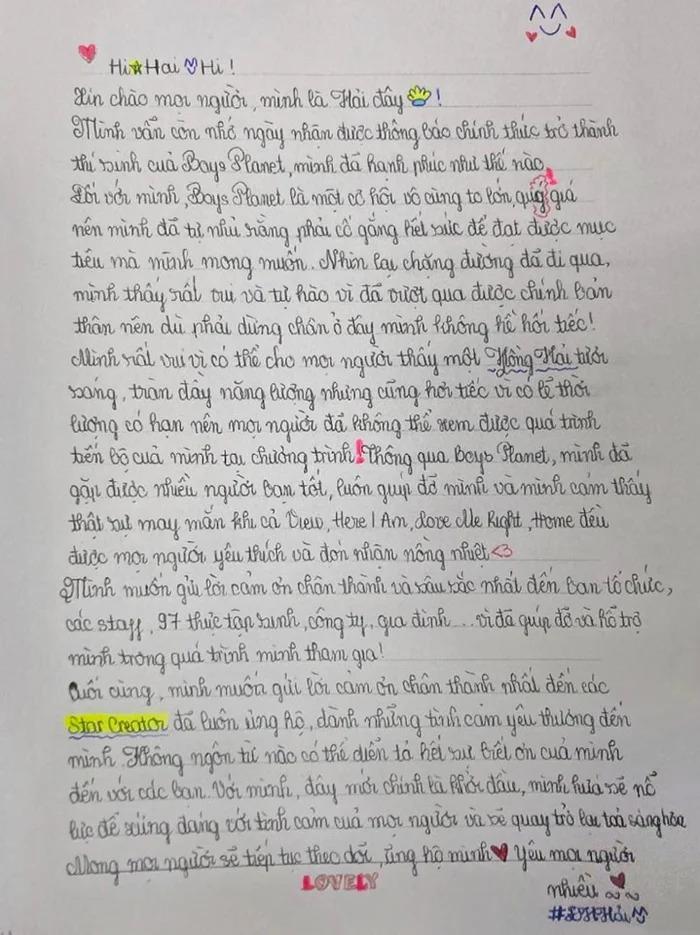 Hi☆Hai♡Hi!
Xin chào mọi người, mình là Hải đây!
Mình vẫn còn nhớ ngày nhận được thông báo chính thức trở thành
thí sinh của Boys Planet, mình đã hạnh phúc như thế nào
Đối với mình, Boys Planet là một cơ hội vô cùng to lớn, quý giá
nên mình đã tự nhủ rằng phải cố gắng hết sức để đạt được mục
tiêu mà mình mong muốn. Nhìn lại chặng đường đã đi qua,
mình thấy rất vui và tự hào vì đã vượt qua được chính bản
thân nên dù phải dừng chân ở đây mình không hề hối tiếc!
Mình rất vui vì có thể cho mọi người thấy một Hồng Hải tươi
sáng, tràn đầy năng lượng nhưng cũng hơi tiếc vì có lẽ thời
lượng có hạn nên mọi người đã không thể xem được quá trình
tiến bộ của mình tại chương trình! Thông qua Boys Planet, mình đã
gặp được nhiều người bạn tốt, luôn giúp đỡ mình và mình cảm thấy
thật sự may mắn khi cả View, Here I Am, Love Me Right, Home đều
được mọi người yêu thích và đón nhận nồng nhiệt <3
Mình muốn gửi lời cảm ơn chân thành và sâu sắc nhất đến ban tổ chức,
các staff, 97 thực tập sinh, công ty, gia đình... vì đã giúp đỡ và hỗ trợ
mình trong quá trình mình tham gia!
Cuối cùng, mình muốn gửi lời cảm ơn chân thành nhất đến các
Star Creator đã luôn ủng hộ, dành những tình cảm yêu thương đến
mình. Không ngôn từ nào có thể diễn tả hết sự biết ơn của mình
đến với các bạn. Với mình, đây mới chính là khởi đầu, mình hứa sẽ nỗ
lực để xứng đáng với tình cảm của mọi người và sẽ quay trở lại toả sáng hơn
Mong mọi người sẽ tiếp tục theo dõi, ủng hộ mình♥ Yêu mọi người
LOVELY
nhiều